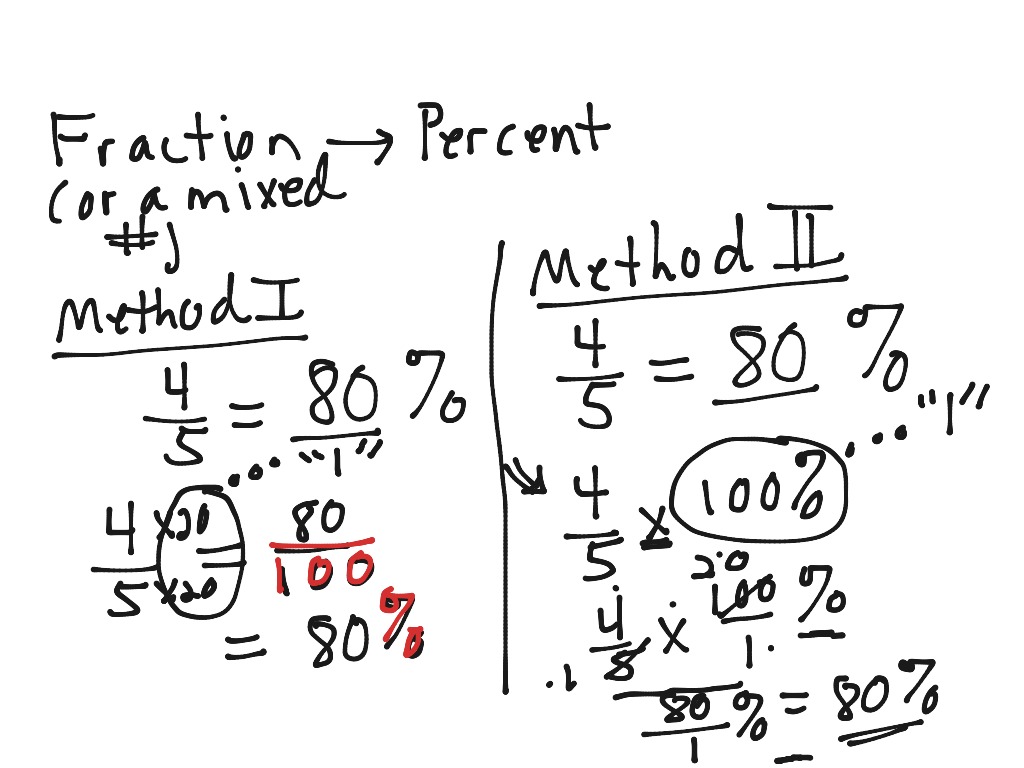 Fraction → Percent
(or a mixed
#)
Method I
4/5 = 80 %
"1"
4 ×20 / 5 ×20 = 80/100
= 80%
Method II
4/5 = 80 %
"1"
4/5 × 100%
20
4/5 × 100/1 %
1
80/1 % = 80%